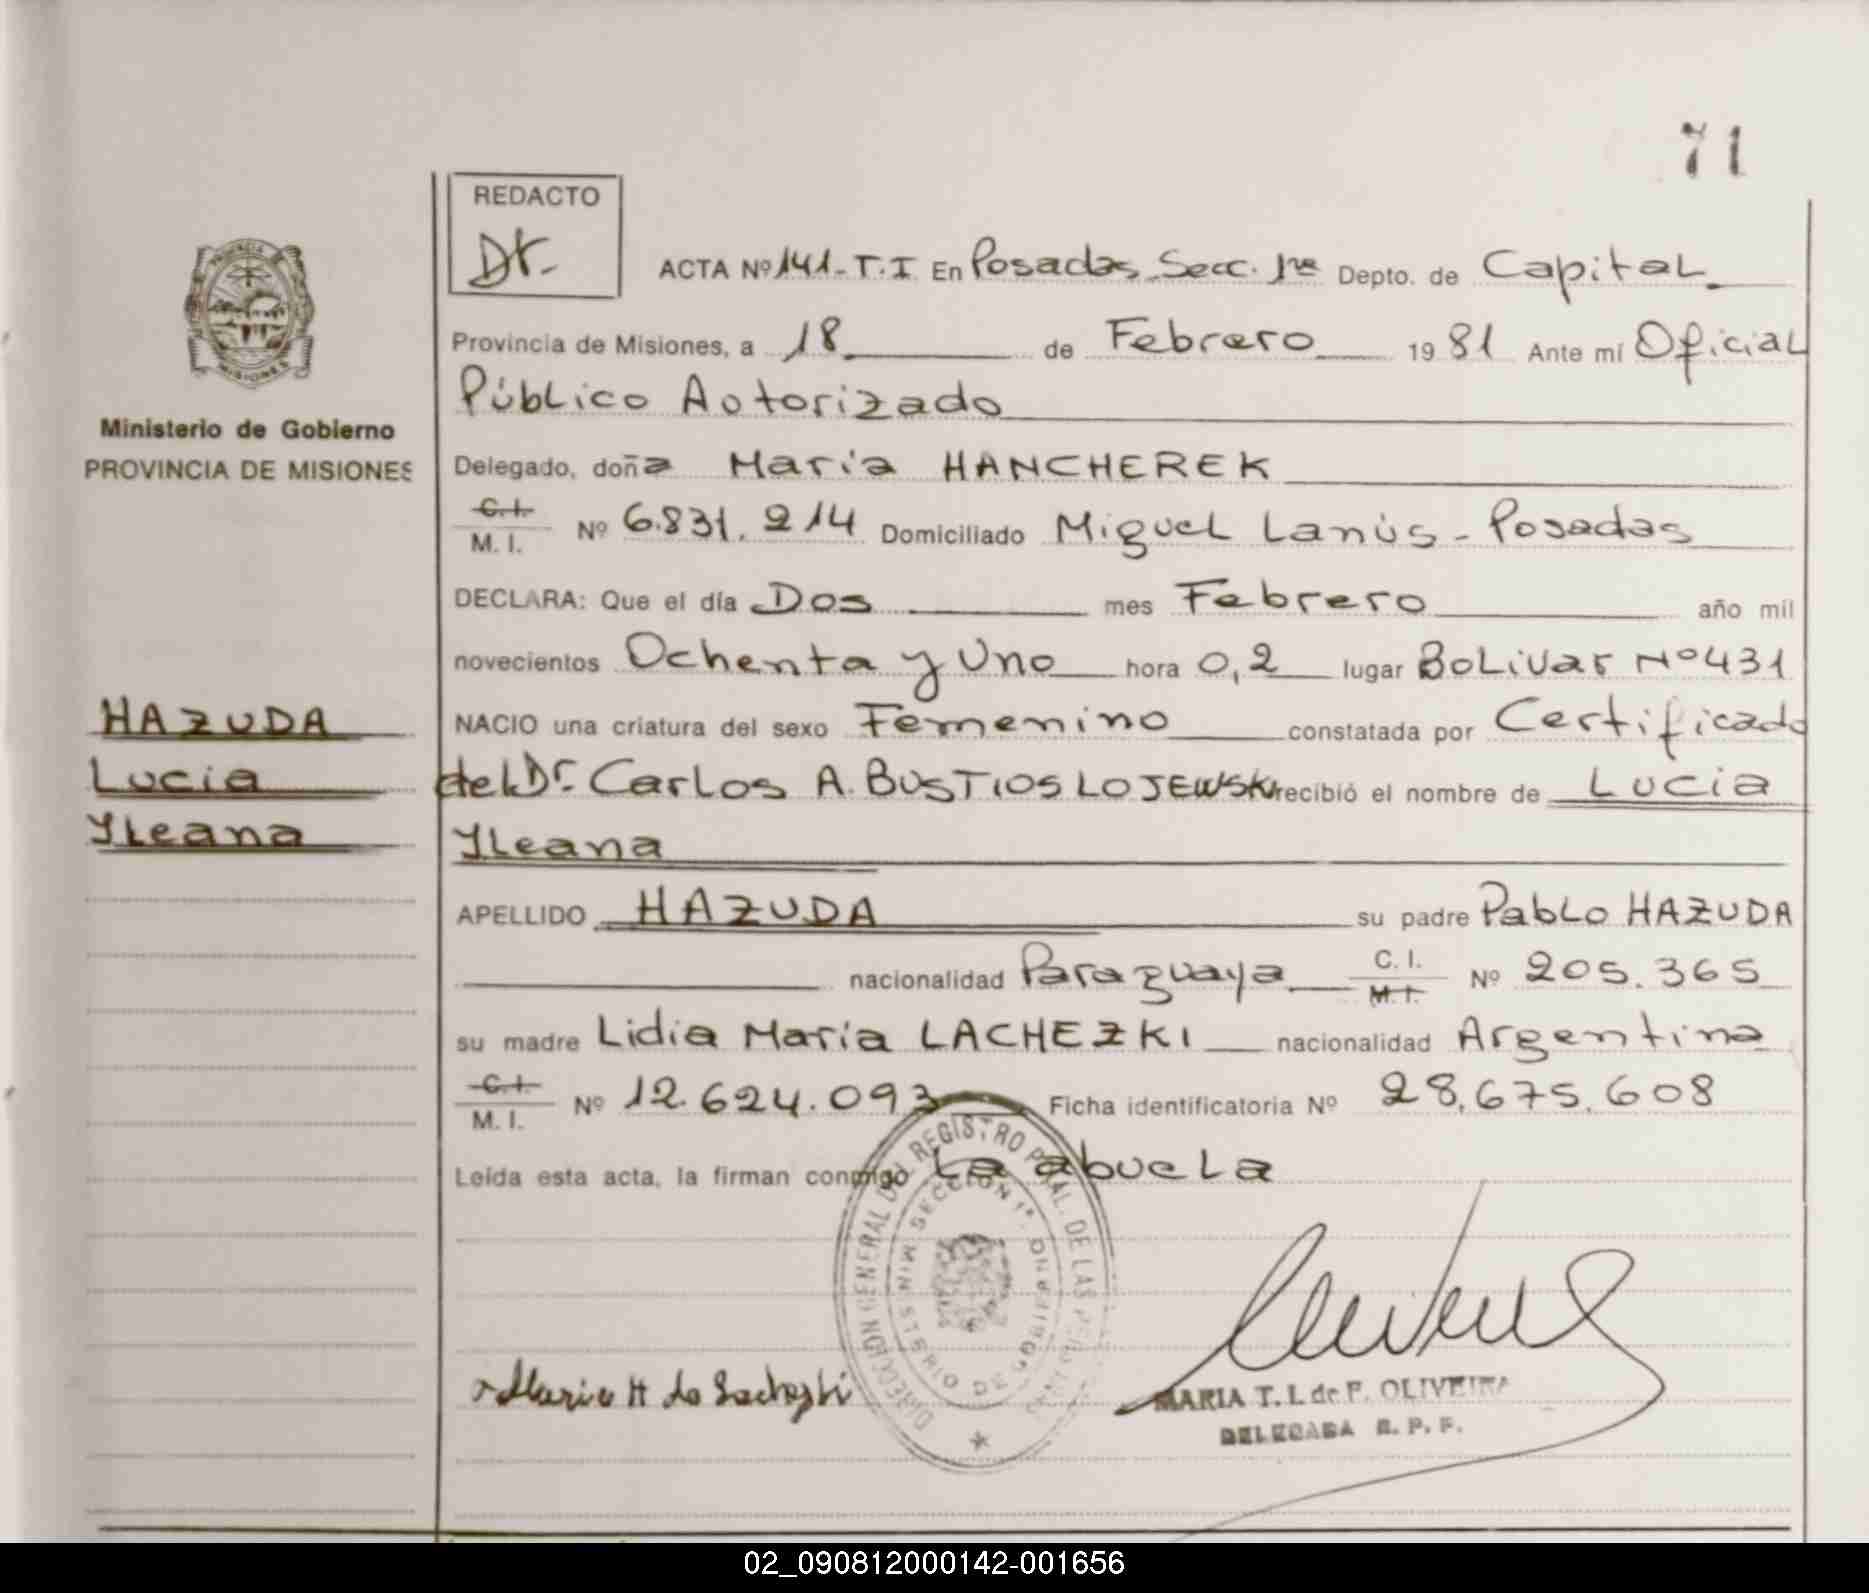 71
REDACTO
ACTA Nº 141-T.I En Posadas-Secc. 1ra Depto. de Capital
Provincia de Misiones, a 18 de Febrero 1981 Ante mí Oficial
Público Autorizado
Ministerio de Gobierno
PROVINCIA DE MISIONES
Delegado, doña María HANCHEREK
C.I.
M. I. Nº 6.831.214 Domiciliado Miguel Lanús - Posadas
DECLARA: Que el día Dos mes Febrero año mil
novecientos Ochenta y Uno hora 0,2 lugar Bolivar Nº 431
HAZUDA
NACIO una criatura del sexo Femenino constatada por Certificado
Lucia
del Dr. Carlos A. BUSTIOS LOJEWSKI recibió el nombre de Lucia
Yleana
Yleana
APELLIDO HAZUDA su padre Pablo HAZUDA
nacionalidad Paraguaya C. I. Nº 205.365
M. I.
su madre Lidia María LACHEZKI nacionalidad Argentina
C.I.
M. I. Nº 12.624.093 Ficha identificatoria Nº 28.675.608
Leída esta acta, la firman conmigo La abuela
DIRECCION GENERAL DEL REGISTRO PCIAL. DE LAS PERSONAS
SECCION 1ª
MINISTERIO DE GOBIERNO
MARIA T. I. de F. OLIVEIRA
DELEGADA R. P. P.
02_090812000142-001656